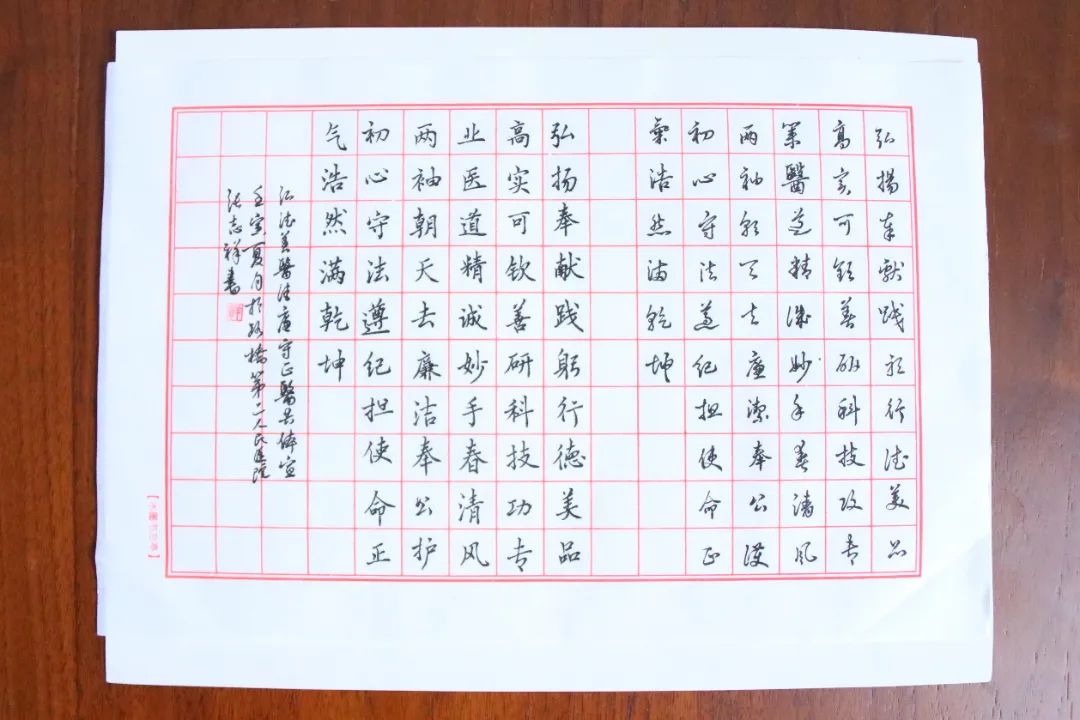 弘揚奉獻踐躬行德美品
高實可欽善研科技功專
業醫道精誠妙手春清風
兩袖朝天去廉潔奉公護
初心守法遵紀担使命正
氣浩然滿乾坤
弘扬奉献践躬行德美品
高实可钦善研科技功专
业医道精诚妙手春清风
两袖朝天去廉洁奉公护
初心守法遵纪担使命正
气浩然满乾坤
弘德善醫清廉守正醫共体宣
壬寅夏月於路橋第二人民医院
张志祥書